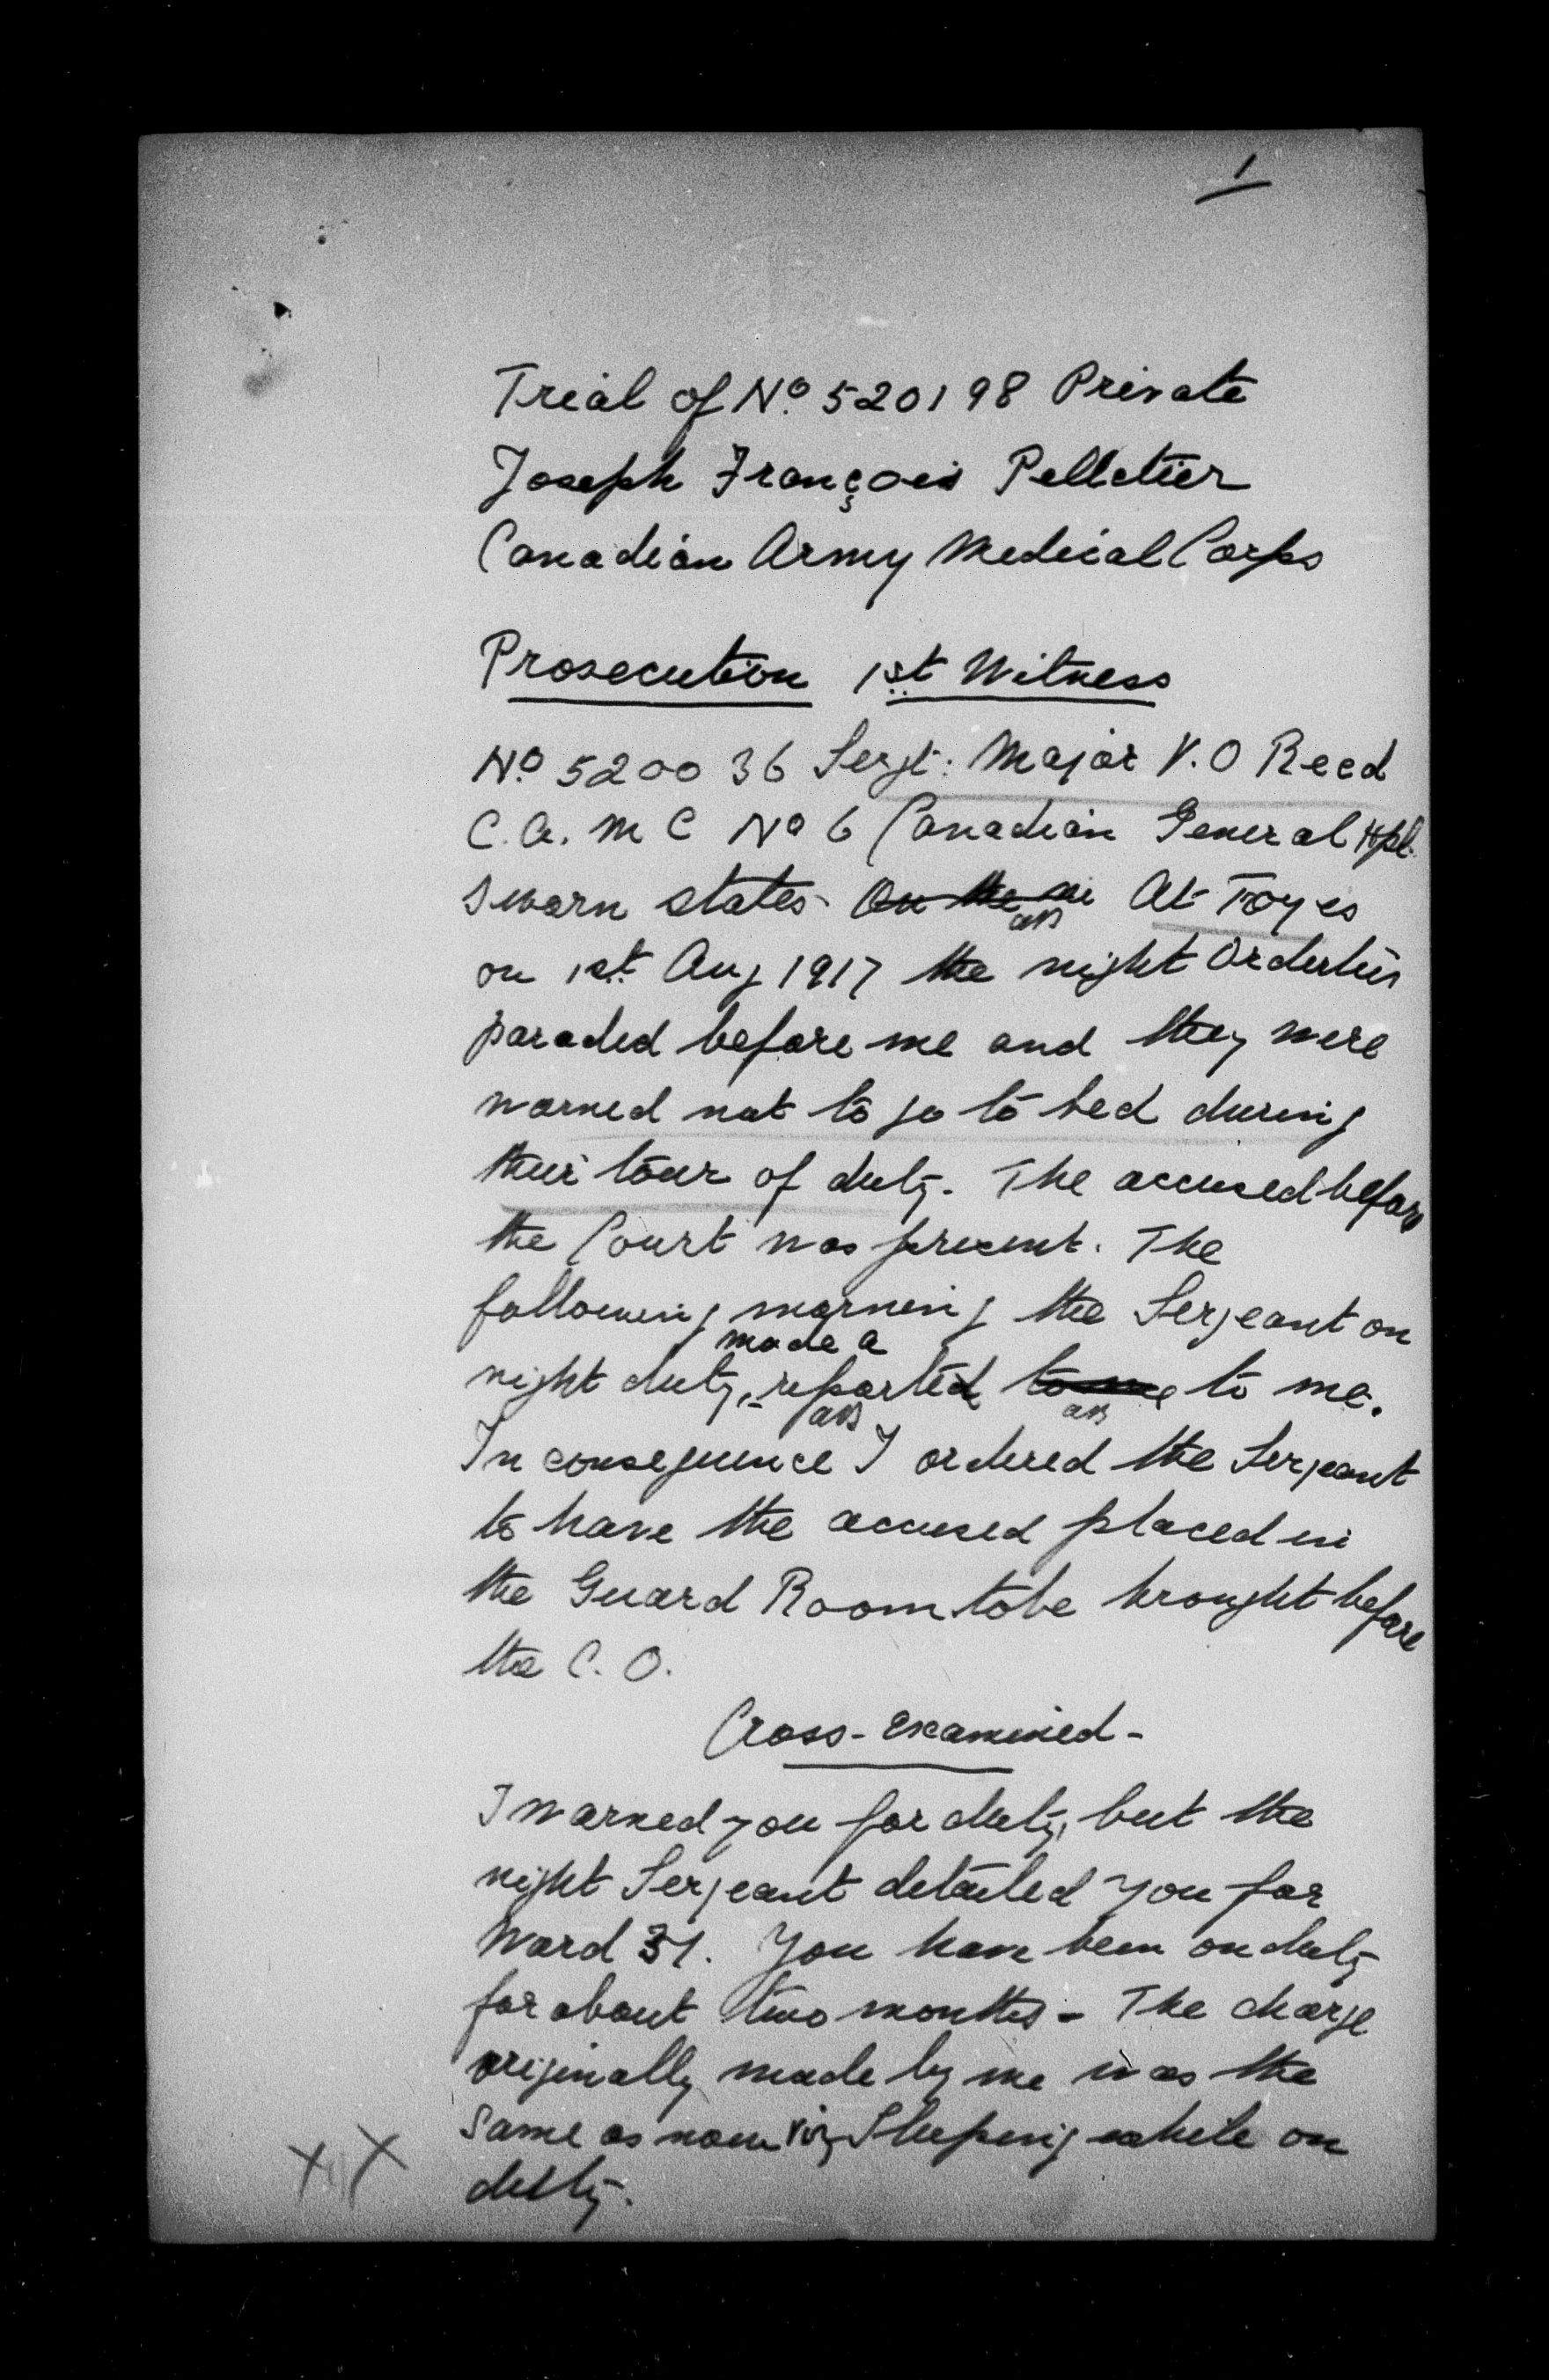 1
Trial of No. 520198 Private
Joseph François Pelletier
Canadian Army Medical Corps
Prosecution 1st Witness
No 520036 Sergt: Major V. O Reed
C. A. M C No 6 Canadian General Hpl.
Sworn states On the At Troyes
on 1st Aug 1917 the night Orderlies
paraded before me and they were
warned not to go to bed during
their tour of duty. The accused before
the Court was present. The
following morning the Sergeant on
made a
night duty, reported to me to me.
In consequence I ordered the Sergeant
to have the accused placed in
the Guard Room to be brought before
the C. O.
Cross-examined-
I warned you for duty, but the
night Sergeant detailed you for
Ward 31. You have been on duty
for about two months - The charge
originally made by me was the
same as now viz Sleeping while on
duty.
X X